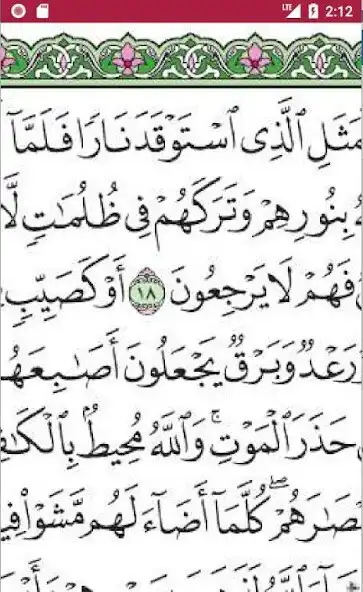 LTE 2:12
مَثَلِ ٱلَّذِى ٱسْتَوْقَدَ نَارًا فَلَمَّآ
بِنُورِهِمْ وَتَرَكَهُمْ فِى ظُلُمَـٰتٍ لَّا
فَهُمْ لَا يَرْجِعُونَ ١٨ أَوْ كَصَيِّبٍ
رَعْدٌ وَبَرْقٌ يَجْعَلُونَ أَصَـٰبِعَهُ
حَذَرَ ٱلْمَوْتِ ۚ وَٱللَّهُ مُحِيطٌۢ بِٱلْكَـٰفِ
بْصَـٰرَهُمْ ۖ كُلَّمَآ أَضَآءَ لَهُم مَّشَوْا۟ فِي